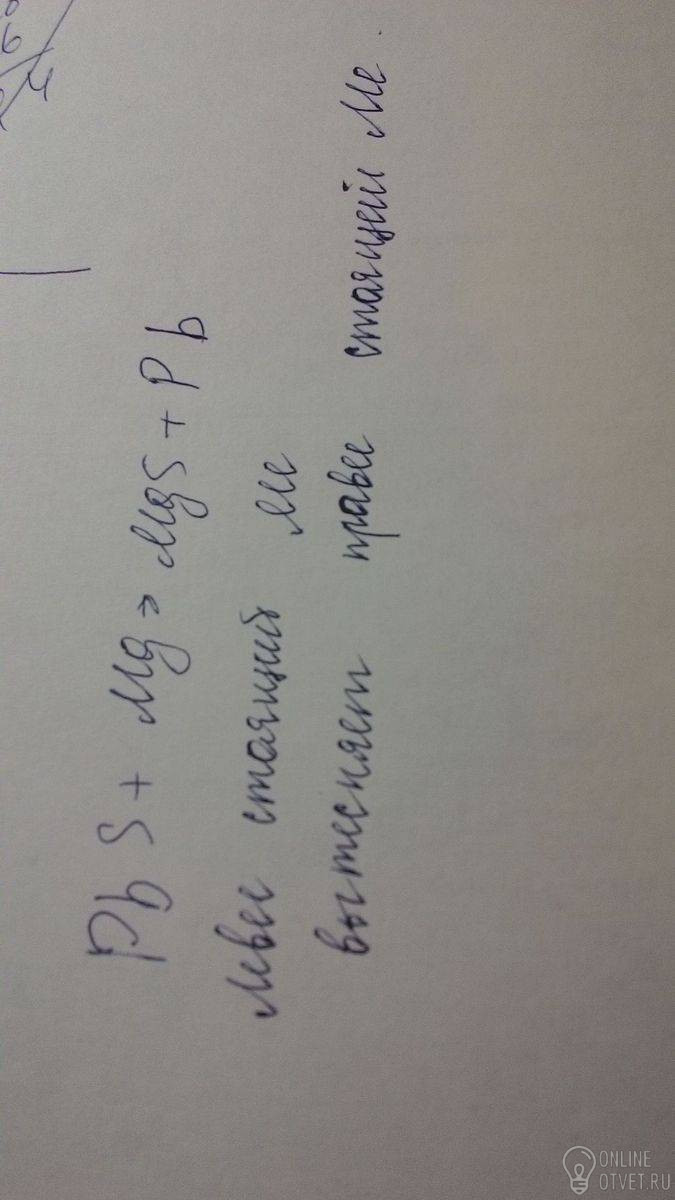 PbS + Mg = MgS + Pb
левее стоящий Ме
вытесняет правее стоящий Ме.
ONLINE
OTVET.RU